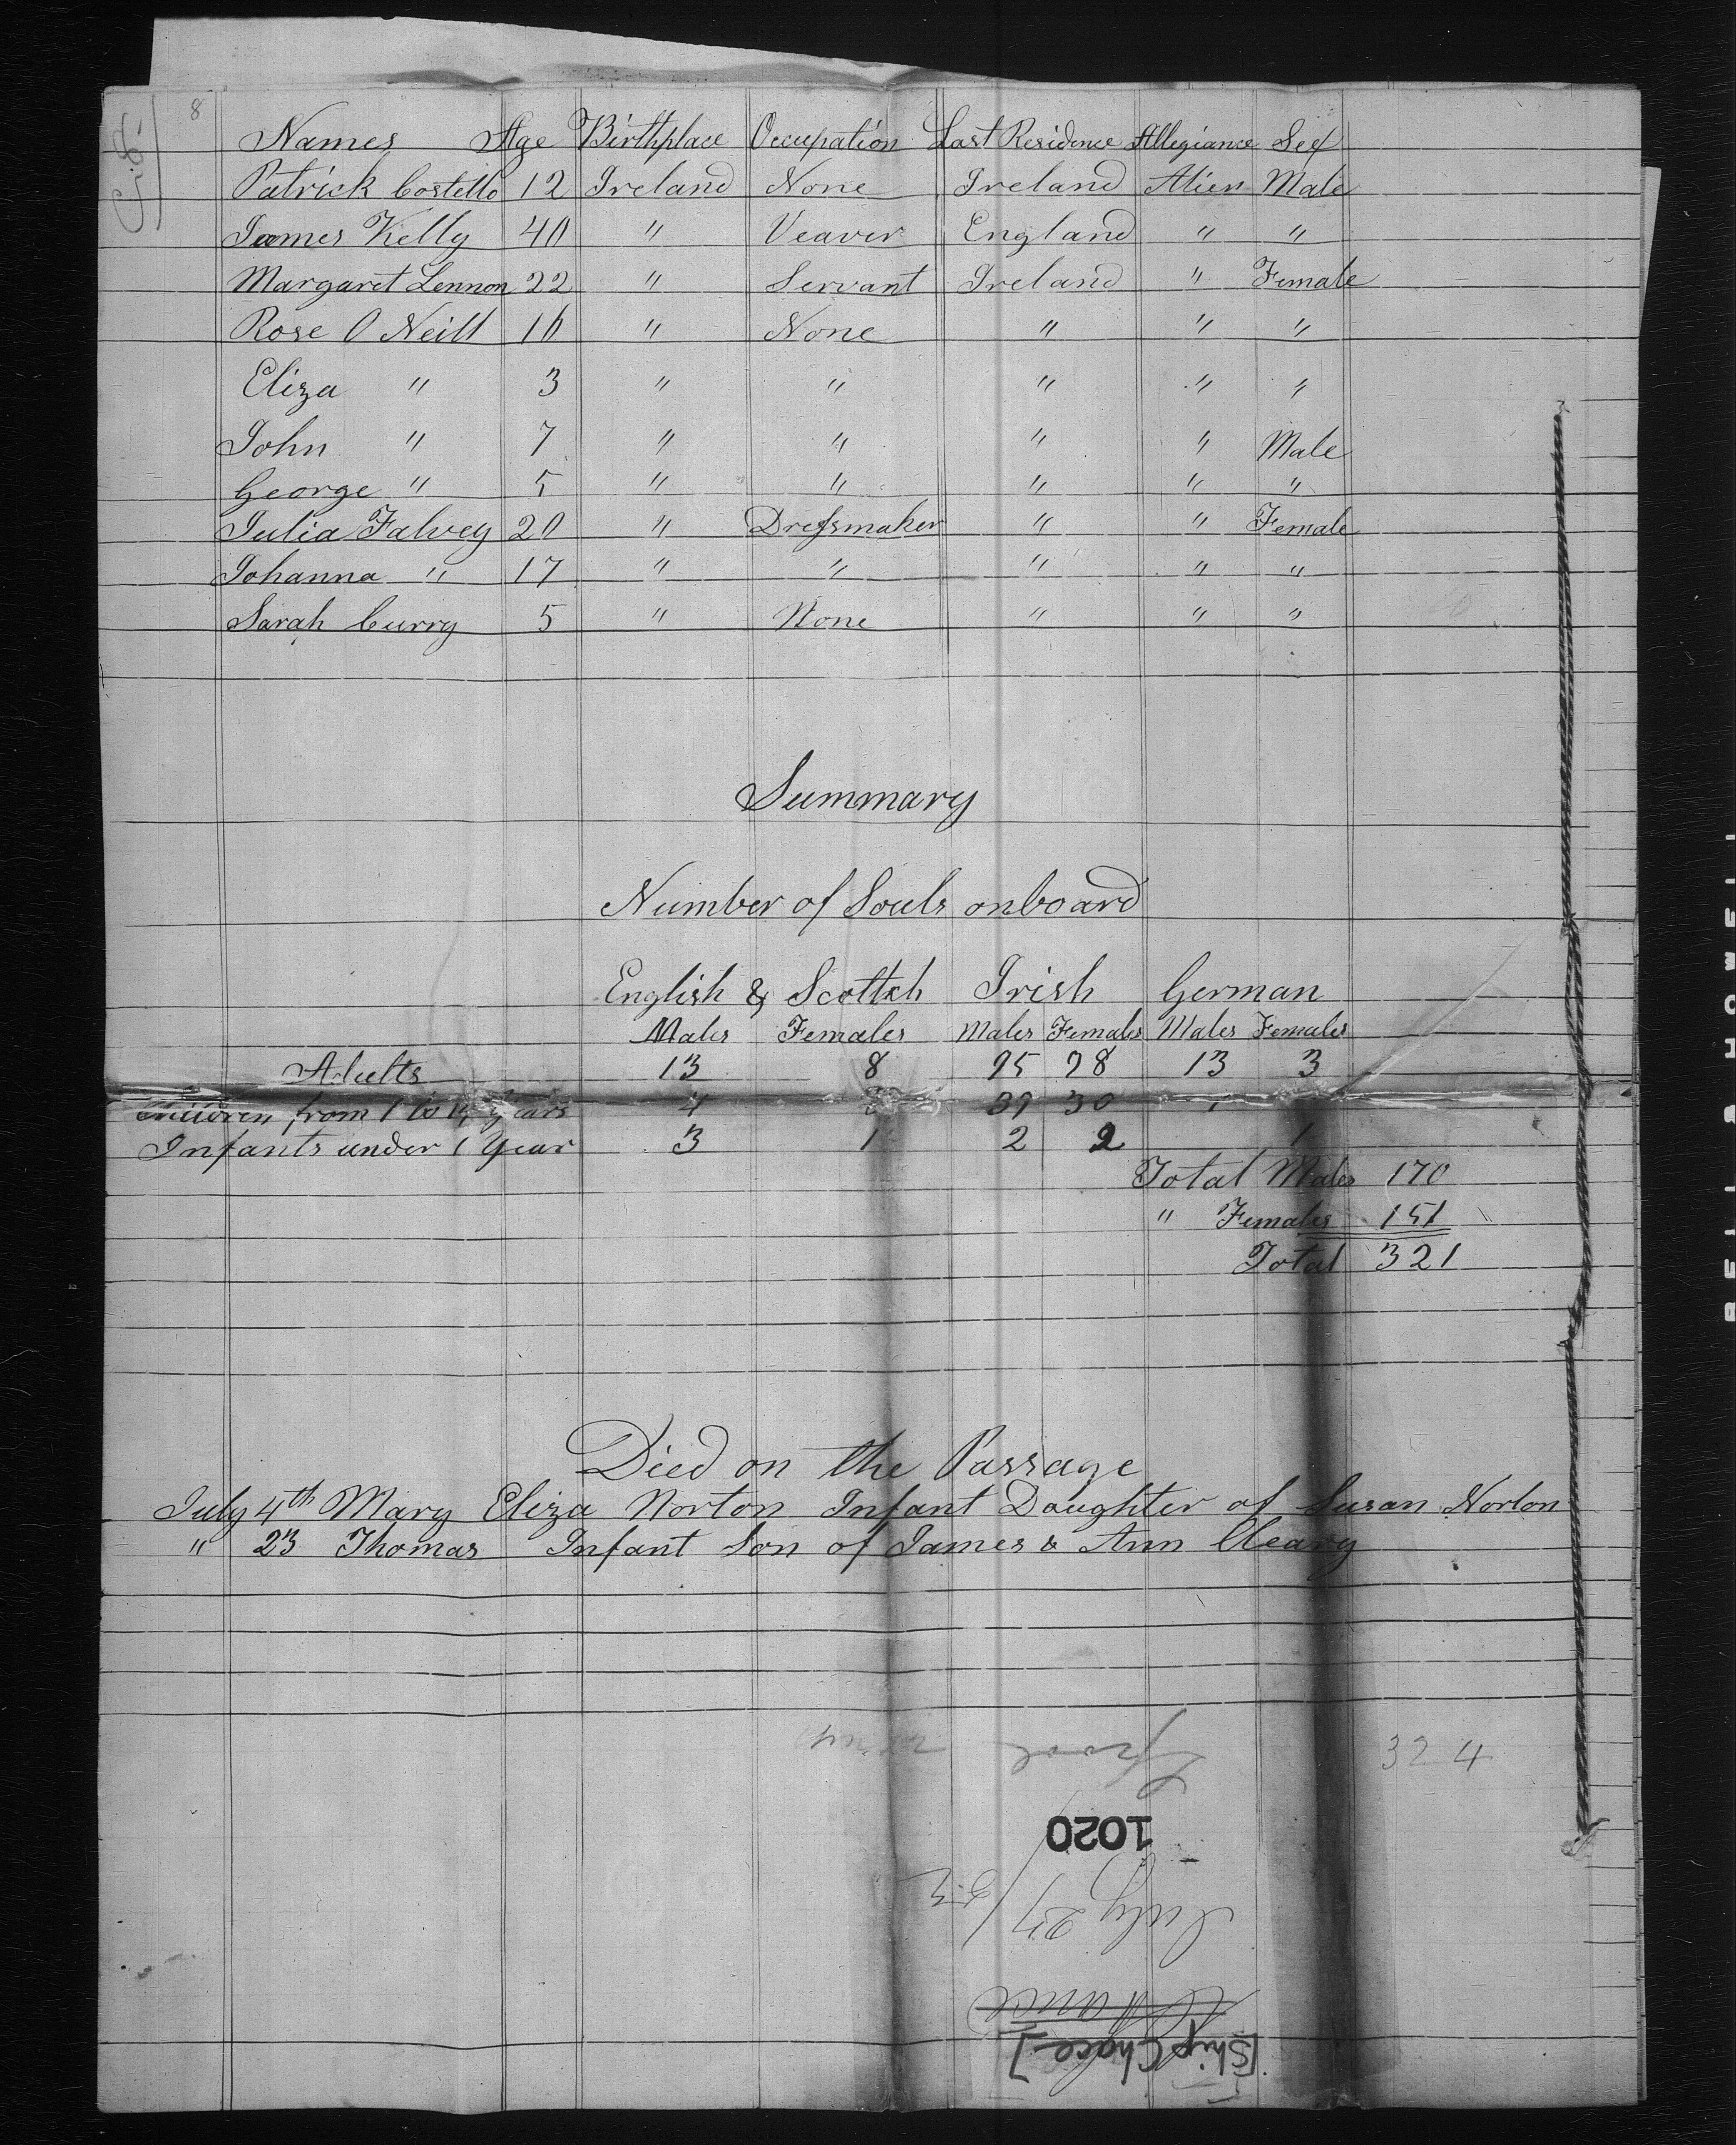 8
Names Age Birthplace Occupation Last Residence Allegiance Sex
Patrick Costello 12 Ireland None Ireland Alien Male
James Kelly 40 " Veaver England " "
Margaret Lennon 22 " Servant Ireland " Female
Rose O Neill 16 " None " " "
Eliza " 3 " " " " "
John " 7 " " " " Male
George " 5 " " " " "
Julia Falvey 20 " Dressmaker " " Female
Johanna " 17 " " " " "
Sarah Curry 5 " None " " "
Summary
Number of Souls onboard
English & Scottch Irish German
Males Females Males Females Males Females
Adults 13 8 95 98 13 3
Children from 1 to 14 years 4 39 30 1
Infants under 1 Year 3 1 2 2 1
Total Males 170
" Females 151
Total 321
Died on the Passage
July 4th Mary Eliza Norton Infant Daughter of Susan Norton
" 23 Thomas Infant Son of James & Ann Cleary
324
1020
July 27
[Ship Chace]
BELL & HOWELL